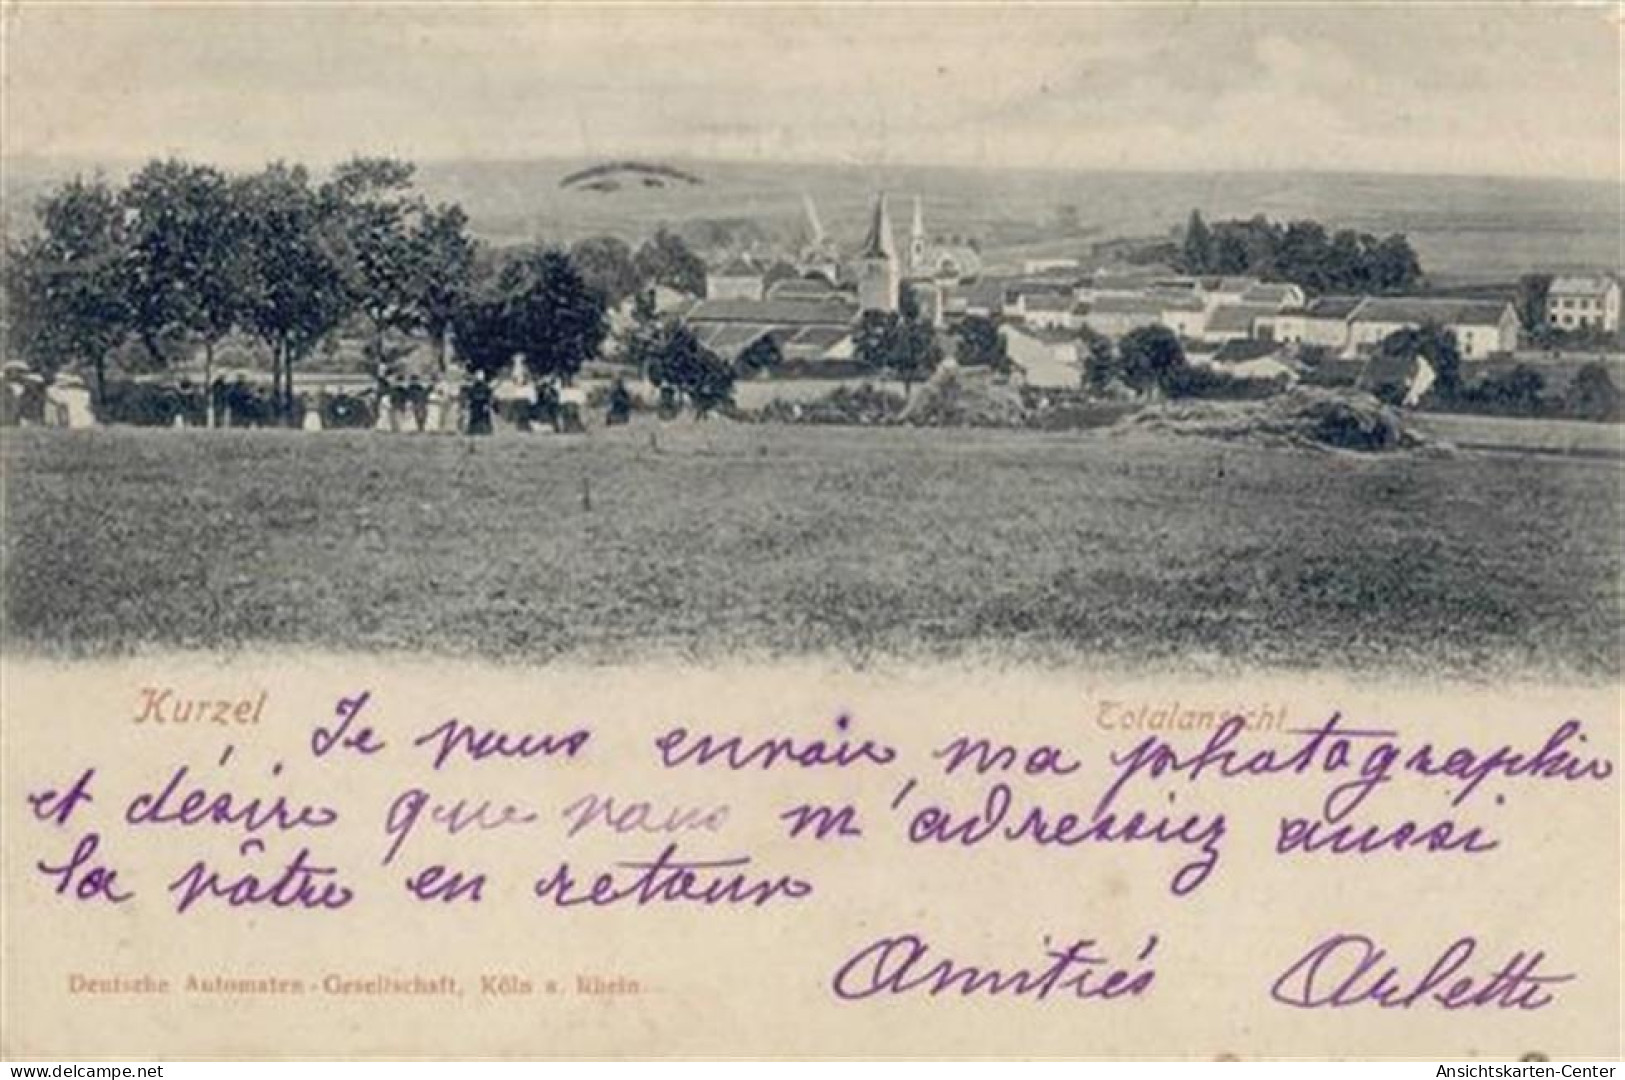 Kurzel
Totalansicht
Je vous envoie ma photographie
et désire que vous m'adressiez aussi
la vôtre en retour
Amitiés Arlette
Deutsche Automaten-Gesellschaft, Köln a. Rhein.
www.delcampe.net
Ansichtskarten-Center